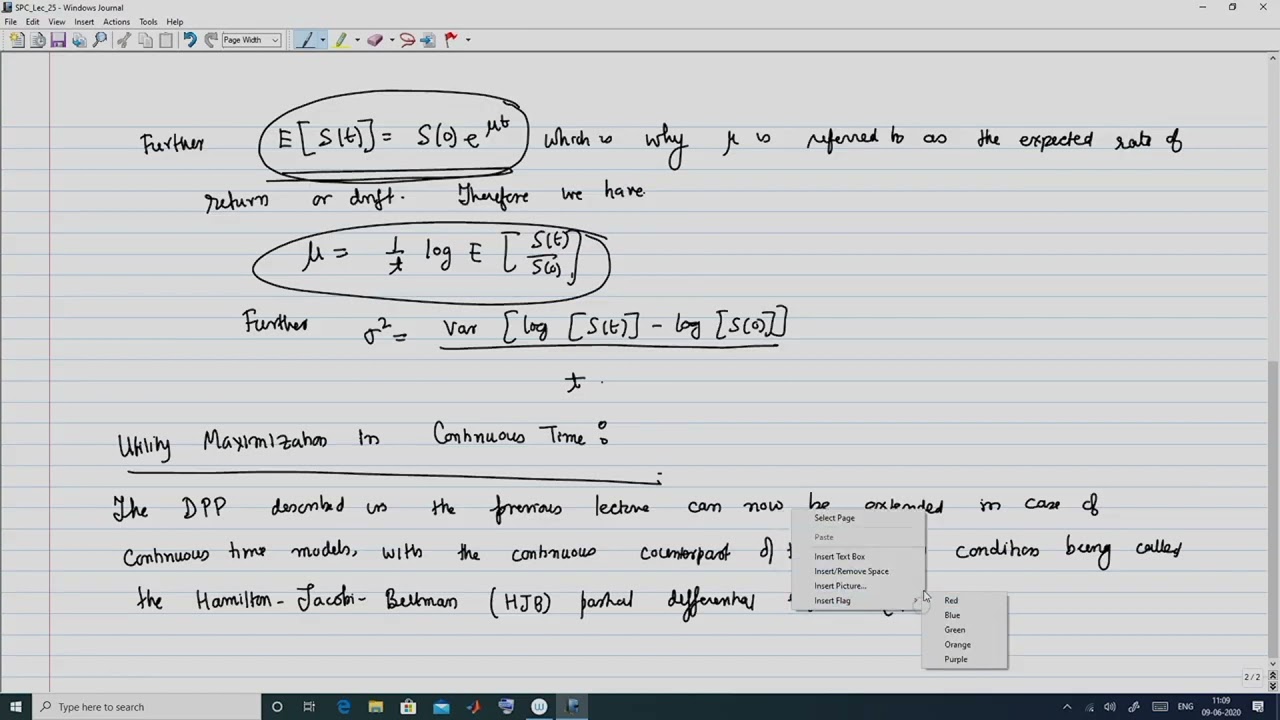 SPC_Lec_25 - Windows Journal
File Edit View Insert Actions Tools Help
Page Width
Further E[S(t)] = S(0) e^{μt} which is why μ is referred to as the expected rate of
return or drift. Therefore we have
μ = 1/t log E [S(t)/S(0)]
Further σ² = Var [log [S(t)] - log [S(0)]]
t
Utility Maximization in Continuous Time :
The DPP described in the previous lecture can now be extended in case of
Continuous time models, with the continuous counterpart of condition being called
the Hamilton-Jacobi-Bellman (HJB) partial differential
Select Page
Paste
Insert Text Box
Insert/Remove Space
Insert Picture...
Insert Flag
Red
Blue
Green
Orange
Purple
2/2
Type here to search
ENG
11:09
09-06-2020